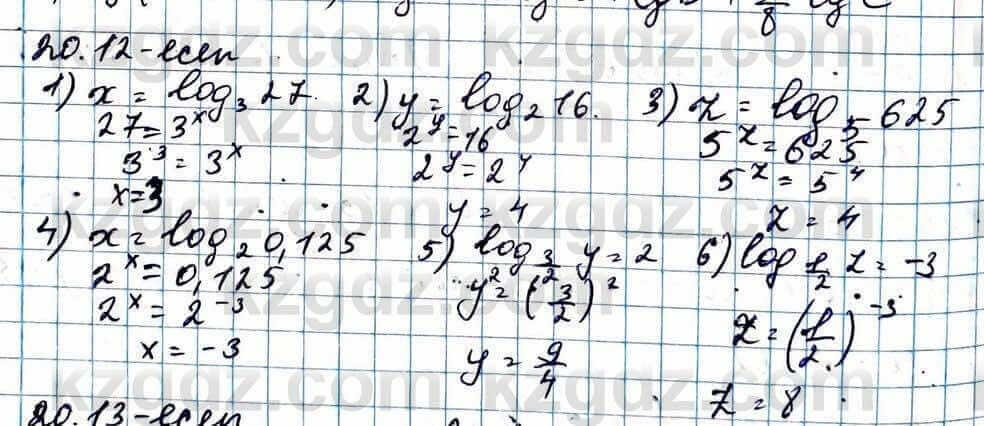 20.12-есеп
1) x = log₃ 27.
27 = 3ˣ
3³ = 3ˣ
x = 3
2) y = log₂ 16.
2ʸ = 16
2ʸ = 2⁴
y = 4
3) z = log₅ 625
5ᶻ = 625
5ᶻ = 5⁴
z = 4
4) x = log₂ 0,125
2ˣ = 0,125
2ˣ = 2⁻³
x = -3
5) log_{3/2} y = 2
y² = (3/2)²
y = 9/4
6) log_{1/2} z = -3
z = (1/2)⁻³
z = 8
20.13-есеп